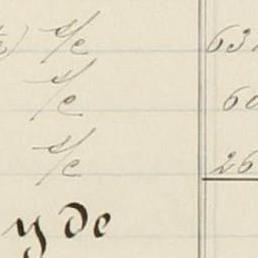 s/c 63
s/c 60
s/c 26
y de